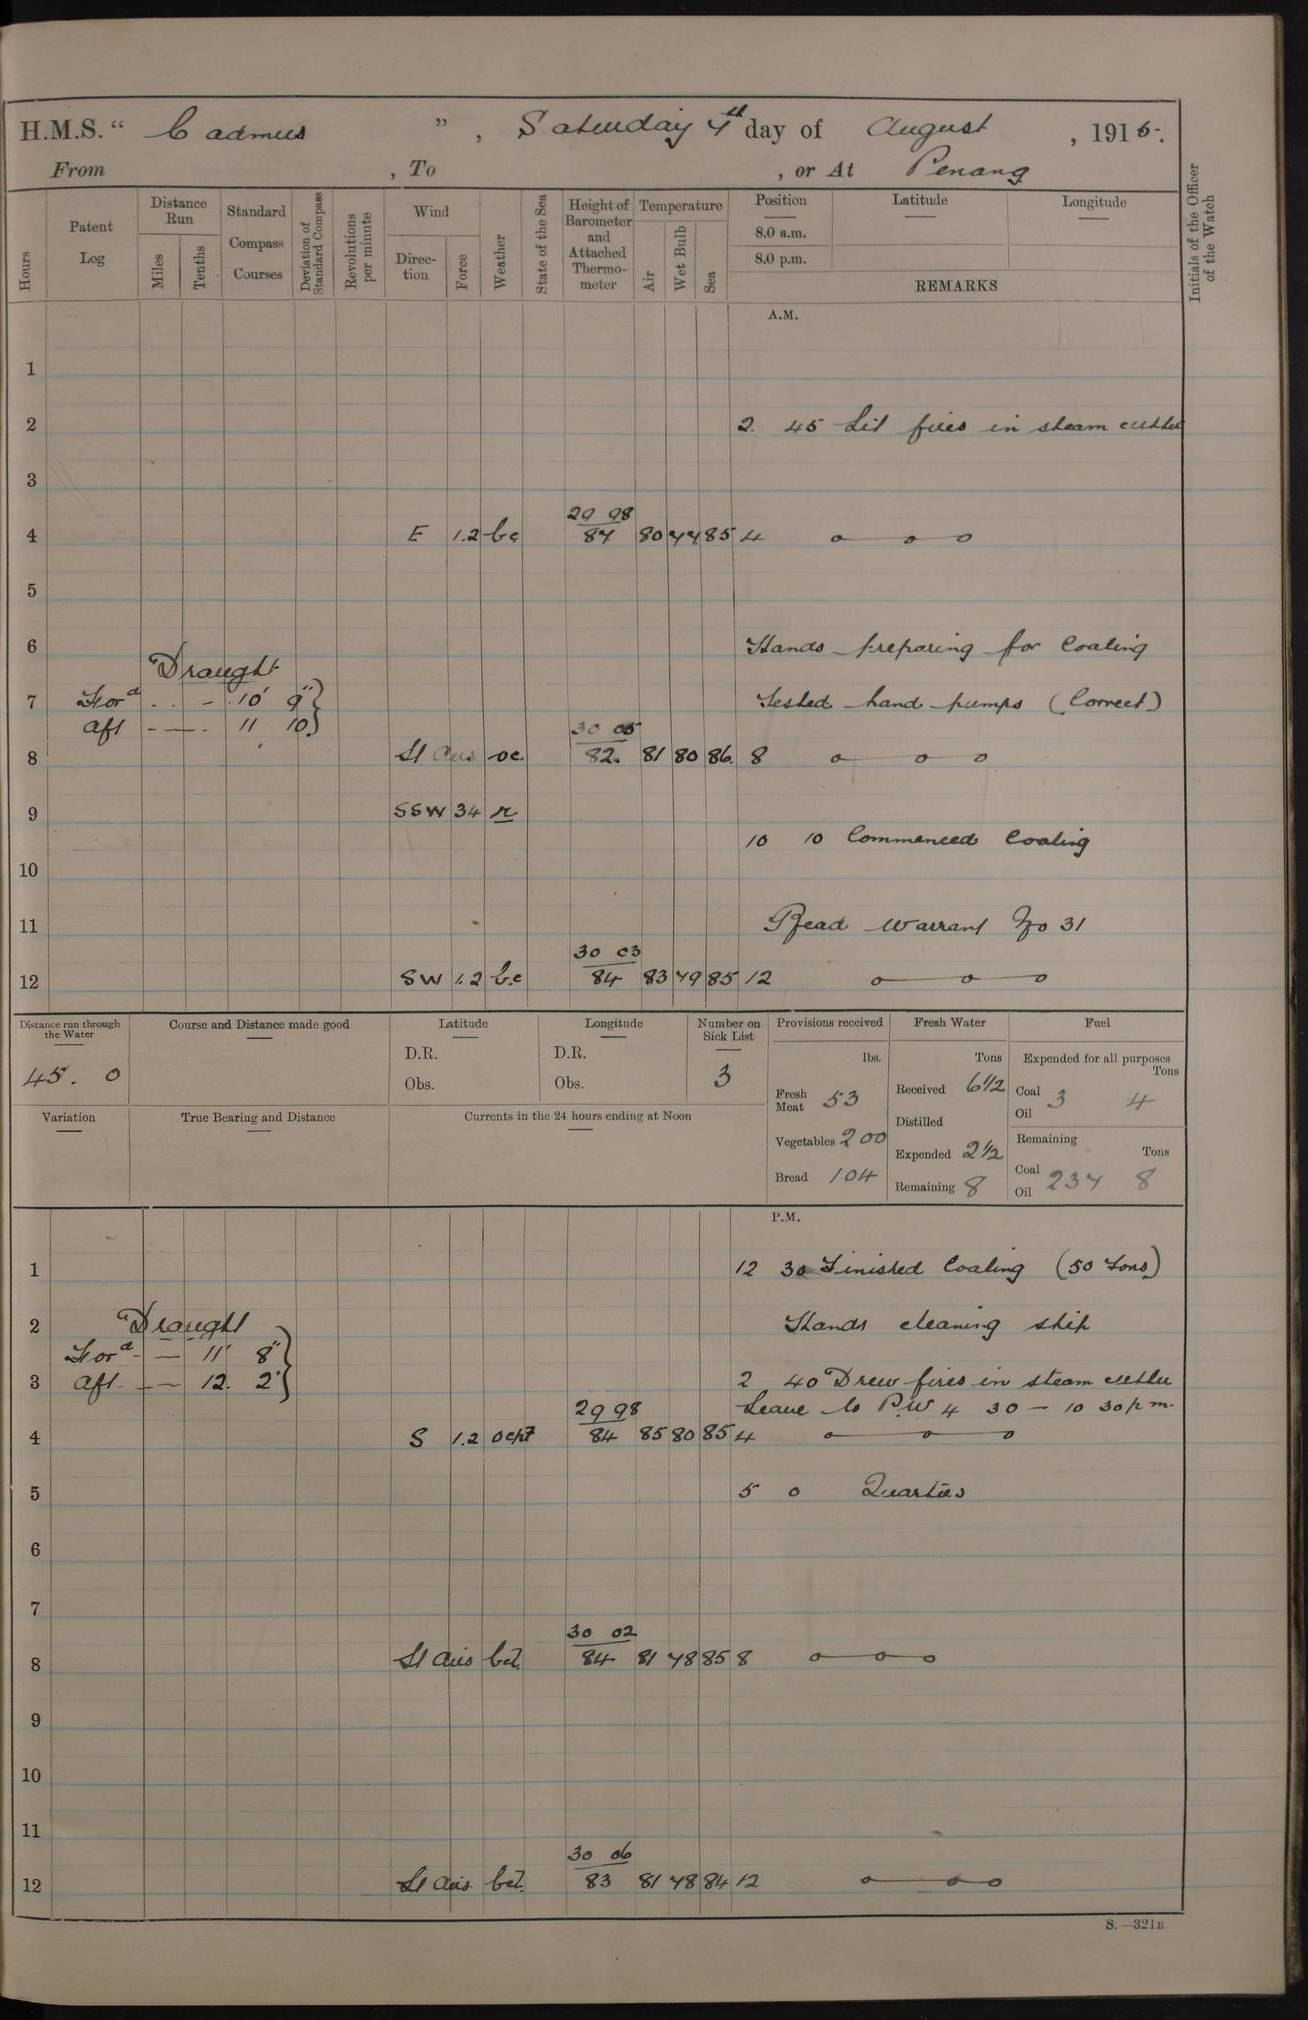 H.M.S. “ Cadmus ” , Saturday 7th day of August , 1915.
From , To , or At Penang
Hours
Patent Log
Distance Run
Miles
Tenths
Standard Compass Courses
Deviation of Standard Compass
Revolutions per minute
Wind
Direction
Force
Weather
State of the Sea
Height of Barometer and Attached Thermometer
Temperature
Air
Wet Bulb
Sea
Position
8.0 a.m.
8.0 p.m.
Latitude
Longitude
REMARKS
Initials of the Officer of the Watch
A.M.
1
2 2 45 Lit fires in steam cutter
3
29 98
4 E 1.2 bc 87 80 77 85 4
5
6 Hands preparing for Coaling
"Draught
7 Ford .. - 10' 9" Tested hand pumps (Correct)
aft - — . 11 10
30 05
8 Lt airs oc. 82. 81 80 86. 8
9 SSW 34 r
10 10 Commenced Coaling
10
11 Read Warrant No 31
30 03
12 SW 1.2 b.c 84 83 79 85 12
Distance run through the Water
45. 0
Course and Distance made good
Latitude
D.R.
Obs.
Longitude
D.R.
Obs.
Number on Sick List
3
Provisions received
lbs.
Fresh Meat 53
Vegetables 200
Bread 104
Fresh Water
Tons
Received 6½
Distilled
Expended 2½
Remaining 8
Fuel
Expended for all purposes
Tons
Coal 3 4
Oil
Remaining
Tons
Coal 237 8
Oil
Variation
True Bearing and Distance
Currents in the 24 hours ending at Noon
P.M.
1 12 30 Finished Coaling (50 Tons)
2 "Draught Hands cleaning ship
Ford - — 11' 8"
3 aft. - — 12. 2" 2 40 Drew fires in steam cutter
29 98 Leave to P.W 4 30 — 10 30 p m.
4 S 1.2 84 85 80 85 4
5 5 0 Quarters
6
7
30 02
8 Lt airs 84 81 78 85 8
9
10
11
30 06
12 Lt airs 83 81 78 84 12
S.—321B